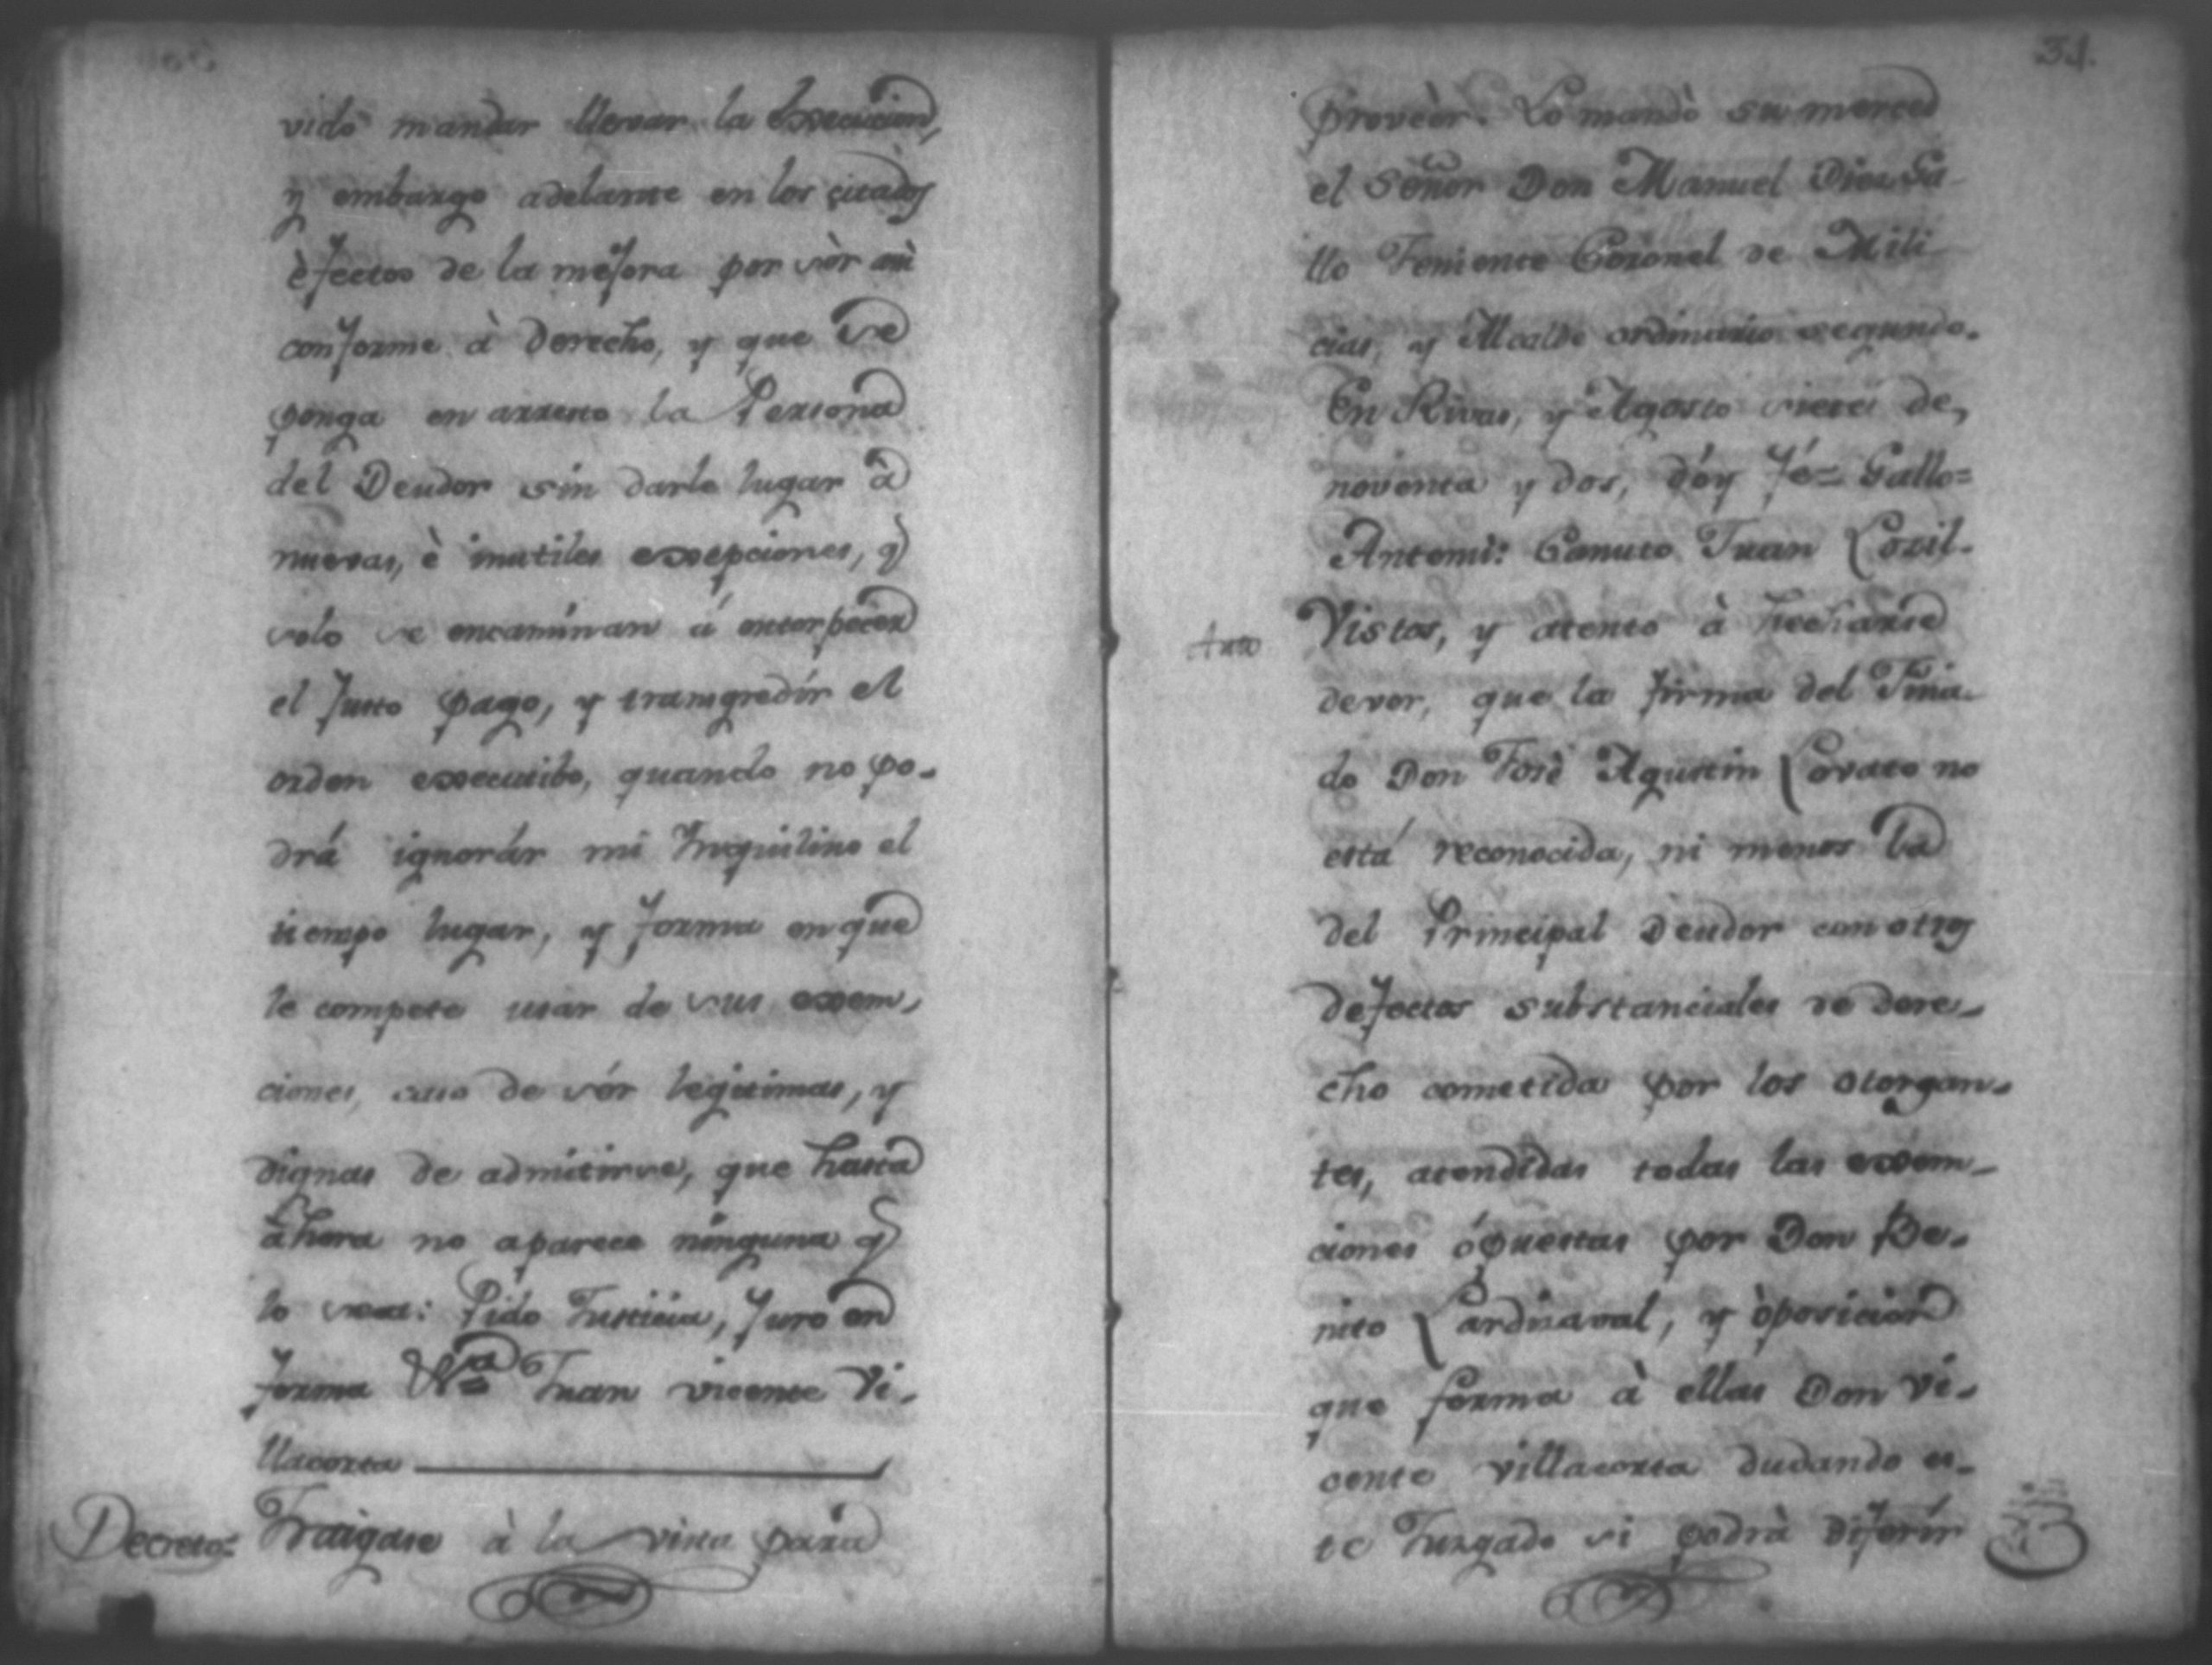 vido mandar llevar la Execucion,
y embargo adelante en los citados
èfectos de la mejora por sèr asi
conforme à derecho, y que se
ponga en arresto la Persona
del Deudor sin darle lugar à
nuevas, è inutiles exepciones, q̃
solo se encamínan á entorpecer
el Justo pago, y transgredír el
orden executibo, quando no po-
drá ignorár mi Inquilino el
tiempo lugar, y forma en que
le compete usar de sus exem,
ciones, caso de sér legitimas, y
dignas de admitirse, que hasta
ahora no aparece ninguna q̃
lo sea: Pido Justicia, Juro en
forma Juan vicente Vi-
llacorta
Decreto= Traigase à la vista para
31.
Proveèr. Lo mandò su merced
el Señor Don Manuel Diou Ga-
llo Teniente Coronel de Mili
cias, y Alcalde ordinario segundo.
En Rivas, y Agosto siete de,
noventa y dos, dóy fé= Gallo=
Antemi: Canuto Juan Coxil-
Auto Vistos, y atento à hecharse
dever, que la firma del Fina-
do Don José Agustin Lovato no
está reconocida, ni menos la
del Principal Deudor con otros
defectos substanciales de dere-
cho cometida por los otorgan-
tes, atendidas todas las exem-
ciones ópuestas por Don Be-
nito Cardinaval, y òposicion
que forma à ellas Don Vi-
cente Villacorta dudando es-
te Juzgado si podrà diferír